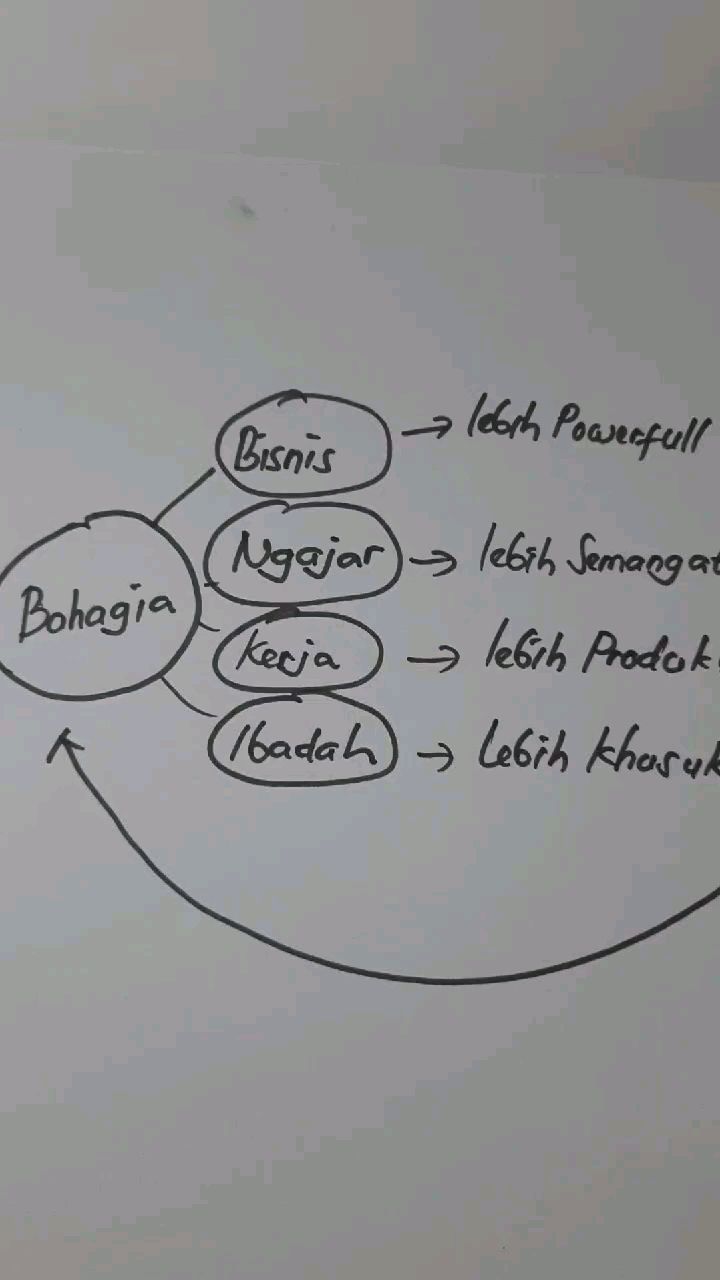 Bisnis → lebih Powerfull
Ngajar → lebih Semangat
Bahagia
Kerja → lebih Produk
Ibadah → Lebih Khusuk